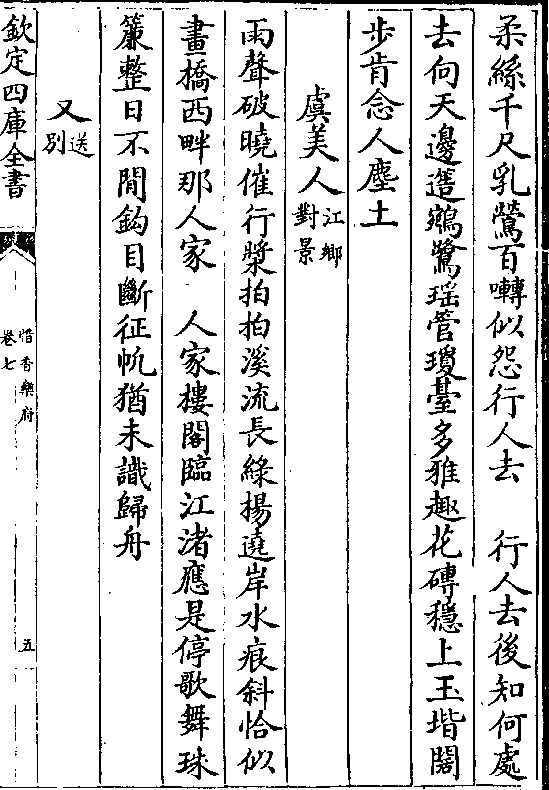 柔絲千尺乳鶯百囀似怨行人去　行人去後知何處
去向天邊篴鵷鷺瑶管瓊臺多雅趣花磚穩上玉堦闊
步肯念人塵土
虞美人江鄉對景
雨聲破曉催行槳拍拍溪流長綠楊遶岸水痕斜恰似
畫橋西畔那人家　人家樓閣臨江渚應是停歌舞珠
簾整日不閒鈎目斷征帆猶未識歸舟
又送别
欽定四庫全書
惜香樂府
卷七
五